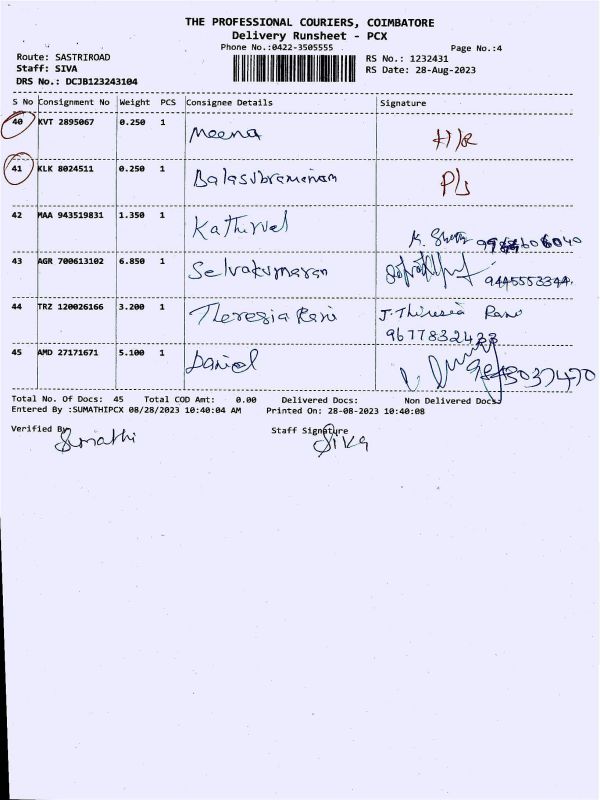 THE PROFESSIONAL COURIERS, COIMBATORE
Delivery Runsheet - PCX
Phone No.:0422-3505555 Page No.:4
Route: SASTRIROAD RS No.: 1232431
Staff: SIVA RS Date: 28-Aug-2023
DRS No.: DCJB123243104
S No Consignment No Weight PCS Consignee Details Signature
40 KVT 2895067 0.250 1 Meena H/R
41 KLK 8024511 0.250 1 Balasubramaniam P/S
42 MAA 943519831 1.350 1 Kathirvel
43 AGR 700613102 6.850 1 Selvakumaran 9445553344.
44 TRZ 120026166 3.200 1 Theresia Rani J. Thiresia Rani
9677832433
45 AMD 27171671 5.100 1 Daniel
Total No. Of Docs: 45 Total COD Amt: 0.00 Delivered Docs: Non Delivered Docs:
Entered By :SUMATHIPCX 08/28/2023 10:40:04 AM Printed On: 28-08-2023 10:40:08
Verified By Sumathi Staff Signature Siva